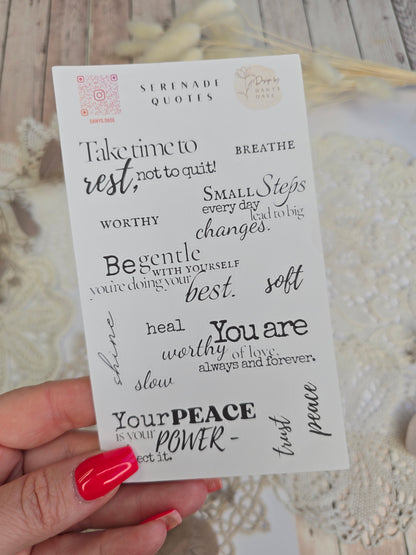 SERENADE
QUOTES
DANYS.DASE
Take time to
rest, not to quit!
BREATHE
SMALL Steps
every day
lead to big
changes.
WORTHY
Be gentle
WITH YOURSELF
you're doing your
best.
soft
shine
heal
You are
worthy of love,
always and forever.
slow
Your PEACE
IS YOUR POWER -
ect it.
trust
peace